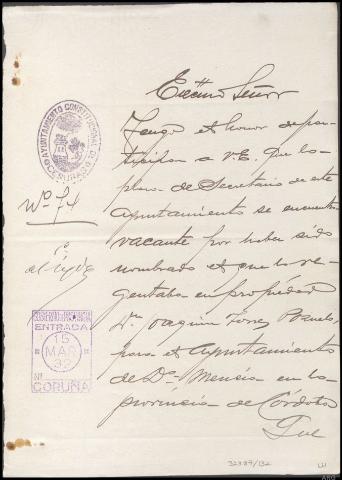 Excmo Señor
Tengo el honor de par-
ticipar a V.E. que la
plaza de Secretario de este
Ayuntamiento se encuentra
vacante por haber sido
nombrado el que la re-
gentaba en propiedad
Dn Joaquin Torres
para el Ayuntamiento
de Dª Mencia en la
provincia de Córdoba
Que
AYUNTAMIENTO CONSTITUCIONAL DE
Nº 74
ENTRADA
15
MAR
32
Nº
CORUÑA
32389/132